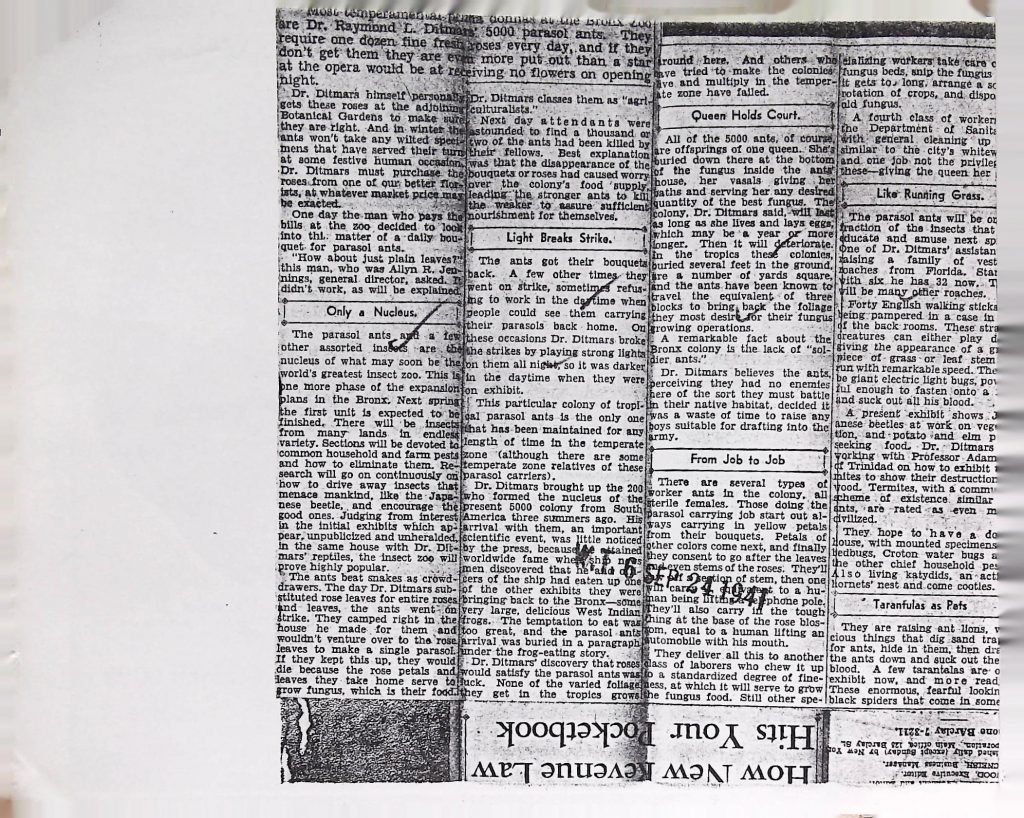 Most temperamental prima donnas at the Bronx Zoo
are Dr. Raymond L. Ditmars' 5000 parasol ants. They
require one dozen fine fresh roses every day, and if they
don't get them they are even more put out than a star
at the opera would be at receiving no flowers on opening
night.
Dr. Ditmars himself personally
gets these roses at the adjoining
Botanical Gardens to make sure
they are right. And in winter the
ants won't take any wilted speci-
mens that have served their turn
at some festive human occasion.
Dr. Ditmars must purchase the
roses from one of our better flor-
ists, at whatever market price may
be exacted.
One day the man who pays the
bills at the zoo decided to look
into th. matter of a daily bou-
quet for parasol ants.
"How about just plain leaves?"
this man, who was Allyn R. Jen-
nings, general director, asked. It
didn't work, as will be explained.
Only a Nucleus.
The parasol ants a few
other assorted insects are the
nucleus of what may soon be the
world's greatest insect zoo. This is
one more phase of the expansion
plans in the Bronx. Next spring
the first unit is expected to be
finished. There will be insects
from many lands in endless
variety. Sections will be devoted to
common household and farm pests
and how to eliminate them. Re-
search will go on continuously on
how to drive away insects that
menace mankind, like the Japa-
nese beetle, and encourage the
good ones. Judging from interest
in the initial exhibits which ap-
pear, unpublicized and unheralded,
in the same house with Dr. Dit-
mars' reptiles, the insect zoo will
prove highly popular.
The ants beat snakes as crowd-
drawers. The day Dr. Ditmars sub-
stituted rose leaves for entire roses
and leaves, the ants went on
strike. They camped right in the
house he made for them and
wouldn't venture over to the rose
leaves to make a single parasol.
If they kept this up, they would
die because the rose petals and
leaves they take home serve to
grow fungus, which is their food.
Dr. Ditmars classes them as "agri-
culturalists."
Next day attendants were
astounded to find a thousand or
two of the ants had been killed by
their fellows. Best explanation
was that the disappearance of the
bouquets or roses had caused worry
over the colony's food supply,
leading the stronger ants to kill
the weaker to assure sufficient
nourishment for themselves.
Light Breaks Strike.
The ants got their bouquets
back. A few other times they
went on strike, sometimes refus-
ing to work in the daytime when
people could see them carrying
their parasols back home. On
these occasions Dr. Ditmars broke
the strikes by playing strong lights
on them all night, so it was darker
in the daytime when they were
on exhibit.
This particular colony of tropi-
cal parasol ants is the only one
that has been maintained for any
length of time in the temperate
zone (although there are some
temperate zone relatives of these
parasol carriers).
Dr. Ditmars brought up the 200
who formed the nucleus of the
present 5000 colony from South
America three summers ago. His
arrival with them, an important
scientific event, was little noticed
by the press, because attained
worldwide fame when ship
men discovered that he and
cers of the ship had eaten up one
of the other exhibits they were
bringing back to the Bronx—some
very large, delicious West Indian
frogs. The temptation to eat was
too great, and the parasol ants
arrival was buried in a paragraph
under the frog-eating story.
Dr. Ditmars' discovery that roses
would satisfy the parasol ants was
luck. None of the varied foliage
they get in the tropics grows
around here. And others who
have tried to make the colonies
live and multiply in the temper-
ate zone have failed.
Queen Holds Court.
All of the 5000 ants, of course,
are offsprings of one queen. She's
buried down there at the bottom
of the fungus inside the ants'
house, her vasals giving her
baths and serving her any desired
quantity of the best fungus. The
colony, Dr. Ditmars said, will last
as long as she lives and lays eggs,
which may be a year or more
longer. Then it will deteriorate.
In the tropics these colonies,
buried several feet in the ground,
are a number of yards square,
and the ants have been known to
travel the equivalent of three
blocks to bring back the foliage
they most desire for their fungus
growing operations.
A remarkable fact about the
Bronx colony is the lack of "sol-
dier ants."
Dr. Ditmars believes the ants,
perceiving they had no enemies
here of the sort they must battle
in their native habitat, decided it
was a waste of time to raise any
boys suitable for drafting into the
army.
From Job to Job
There are several types of
worker ants in the colony, all
sterile females. Those doing the
parasol carrying job start out al-
ways carrying in yellow petals
from their bouquets. Petals of
other colors come next, and finally
they consent to go after the leaves
even stems of the roses. They'll
of stem, then one
to a hu-
man being lifting phone pole.
They'll also carry in the tough
thing at the base of the rose blos-
som, equal to a human lifting an
automobile with his mouth.
They deliver all this to another
class of laborers who chew it up
to a standardized degree of fine-
ness, at which it will serve to grow
the fungus food. Still other spe-
W.T. 6 SEP 24 1941
cializing workers take care o
fungus beds, snip the fungus
it gets to long, arrange a so
rotation of crops, and dispo
old fungus.
A fourth class of worker
the Department of Sanita
with general cleaning up
similar to the city's whitew
and one job not the privile
these—giving the queen her
Like Running Grass.
The parasol ants will be on
fraction of the insects that
educate and amuse next sp
One of Dr. Ditmars' assistan
raising a family of vest
roaches from Florida. Star
with six he has 32 now. T
will be many other roaches.
Forty English walking sticks
being pampered in a case in
of the back rooms. These stra
creatures can either play d
giving the appearance of a g
piece of grass or leaf stem
run with remarkable speed. The
be giant electric light bugs, pow
ful enough to fasten onto a
and suck out all his blood.
A present exhibit shows J
anese beetles at work on vege
tion, and potato and elm p
seeking food. Dr. Ditmars
working with Professor Adam
of Trinidad on how to exhibit
mites to show their destruction
wood. Termites, with a commu
scheme of existence similar
ants, are rated as even m
civilized.
They hope to have a do
house, with mounted specimens
bedbugs, Croton water bugs a
the other chief household pe
Also living katydids, an acti
hornets' nest and come cooties.
Tarantulas as Pets
They are raising ant lions, v
cious things that dig sand tra
for ants, hide in them, then dra
the ants down and suck out the
blood. A few tarantulas are o
exhibit now, and more read
These enormous, fearful lookin
black spiders that come in some
How New Revenue Law
Hits Your Pocketbook
OOD, Executive Editor.
CNEISH, Business Manager.
ished daily (except Sunday) by New Yor
poration, Main office, 125 Barclay St.
one BArclay 7-3211.